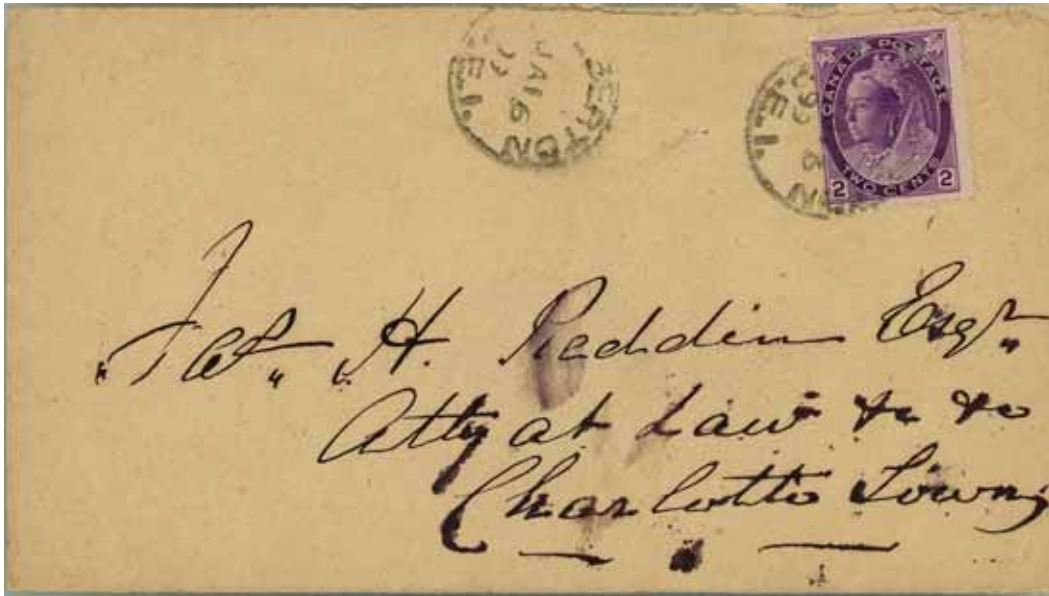 BERTON
JA 16
P.E.I.
CANADA POSTAGE
TWO CENTS
2 2
JA
N
E.I.
Jas. H. Reddin Esqr.
Atty at Law &c &c
Charlotte Town